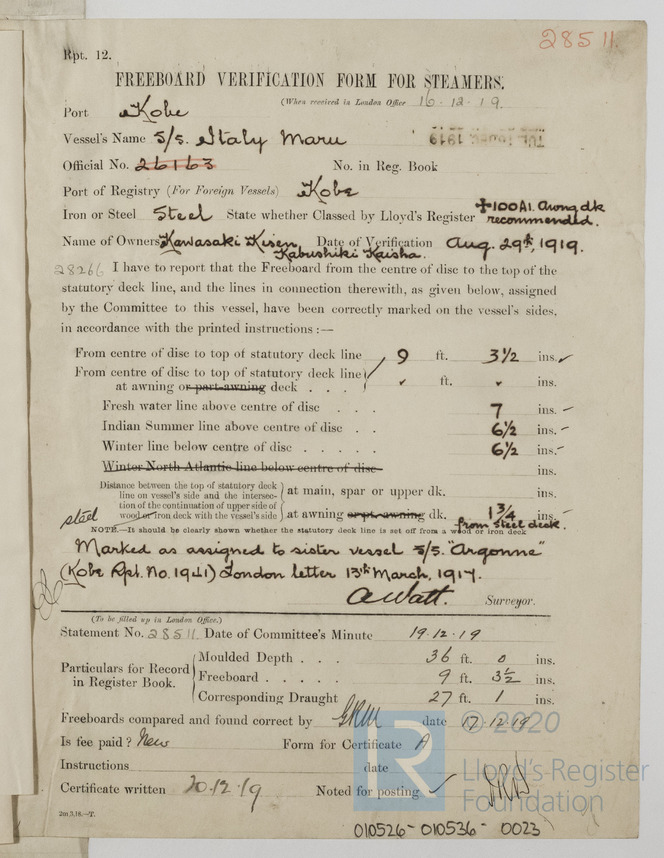 28511.
Rpt. 12.
FREEBOARD VERIFICATION FORM FOR STEAMERS.
(When received in London Office 16.12.19.
Port Kobe
Vessel's Name S/S. Italy Maru
TUE. 1919
Official No. 26163 No. in Reg. Book
Port of Registry (For Foreign Vessels) Kobe
Iron or Steel Steel State whether Classed by Lloyd's Register ✠100A1. Awng dk
recommended.
Name of Owners Kawasaki Kisen Date of Verification Aug. 29th, 1919.
Kabushiki Kaisha.
28266 I have to report that the Freeboard from the centre of disc to the top of the
statutory deck line, and the lines in connection therewith, as given below, assigned
by the Committee to this vessel, have been correctly marked on the vessel's sides,
in accordance with the printed instructions :—
From centre of disc to top of statutory deck line 9 ft. 3½ ins.
From centre of disc to top of statutory deck line
at awning or part-awning deck . . . ft. ins.
Fresh water line above centre of disc . . . 7 ins.
Indian Summer line above centre of disc . . 6½ ins.
Winter line below centre of disc . . . . . 6½ ins.
Winter North Atlantic line below centre of disc ins.
Distance between the top of statutory deck
line on vessel's side and the intersec-
tion of the continuation of upper side of
wood or iron deck with the vessel's side
at main, spar or upper dk. ins.
at awning or pt. awning dk. 1¾ ins.
steel
from steel deck.
NOTE.—It should be clearly shown whether the statutory deck line is set off from a wood or iron deck
Marked as assigned to sister vessel S/S. "Argonne"
(Kobe Rpt. No. 1941) London letter 13th March, 1917.
A Watt. Surveyor.
(To be filled up in London Office.)
Statement No. 28511 Date of Committee's Minute 19.12.19
Particulars for Record
in Register Book.
Moulded Depth . . . 36 ft. 0 ins.
Freeboard . . . . . 9 ft. 3½ ins.
Corresponding Draught 27 ft. 1 ins.
Freeboards compared and found correct by date 17.12.19
Is fee paid? New Form for Certificate A
Instructions date
Certificate written 20.12.19 Noted for posting
2m,3,18.—T.
© 2020
Lloyd's Register
Foundation
010526-010536-0023